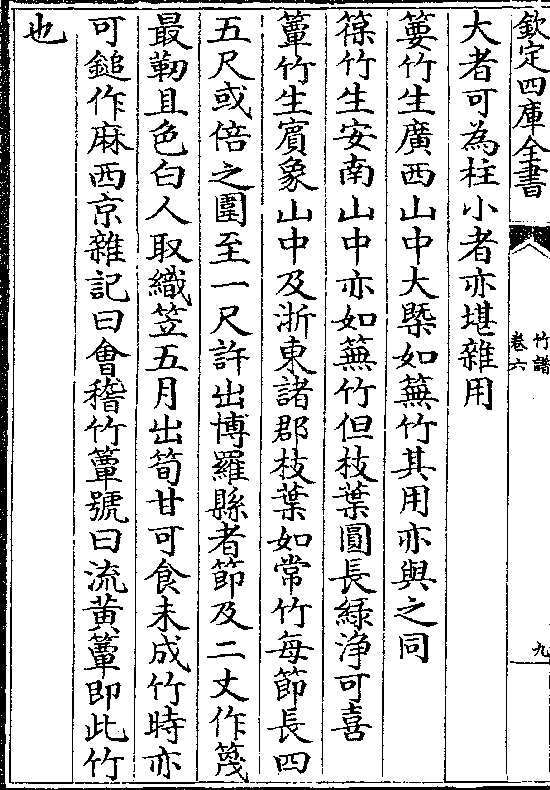 欽定四庫全書
竹譜
卷六
九
大者可為柱小者亦堪雜用
簍竹生廣西山中大槩如䉑竹其用亦與之同
䈽竹生安南山中亦如䉑竹但枝葉圓長綠淨可喜
簟竹生賓象山中及浙東諸郡枝葉如常竹每節長四
五尺或倍之圍至一尺許出博羅縣者節及二丈作篾
最靭且色白人取織笠五月出筍甘可食未成竹時亦
可鎚作麻西京雜記曰會稽竹簟號曰流黃簟即此竹
也